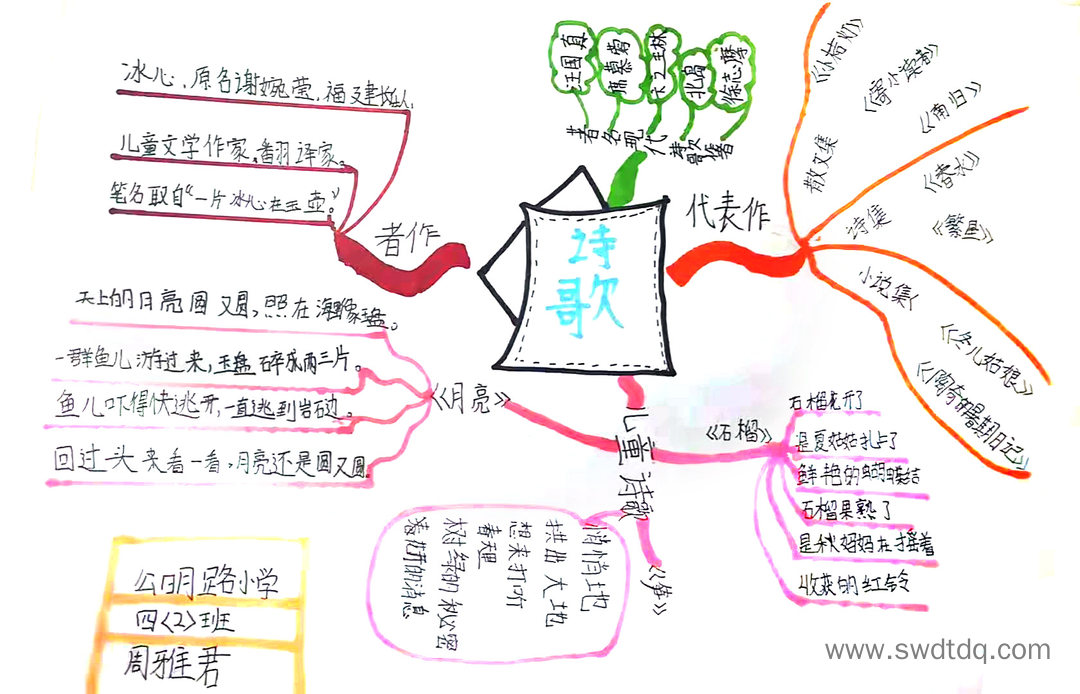 诗歌
者作
冰心,原名谢婉莹,福建人,
儿童文学作家,翻译家。
笔名取自“一片冰心在玉壶。”
著名现代诗歌作者
汪国真
席慕蓉
北岛
徐志摩
代表作
散文集
《小桔灯》
《寄小读者》
《南归》
诗集
《春水》
《繁星》
小说集
《冬儿姑娘》
《陶奇的暑期日记》
儿童诗歌
《月亮》
天上的月亮圆又圆,照在海里像玉盘。
一群鱼儿游过来,玉盘碎成两三片。
鱼儿吓得快逃开,一直逃到岩石边。
回过头来看一看,月亮还是圆又圆。
《石榴》
石榴花开了
是夏姑姑扎上了
鲜艳的蝴蝶结
石榴果熟了
是秋妈妈在摇着
收获的红铃
悄悄地
拱出大地
想来打听
春天里
树绿的秘密
公明路小学
四〈2〉班
周雅君
www.swdtdq.com